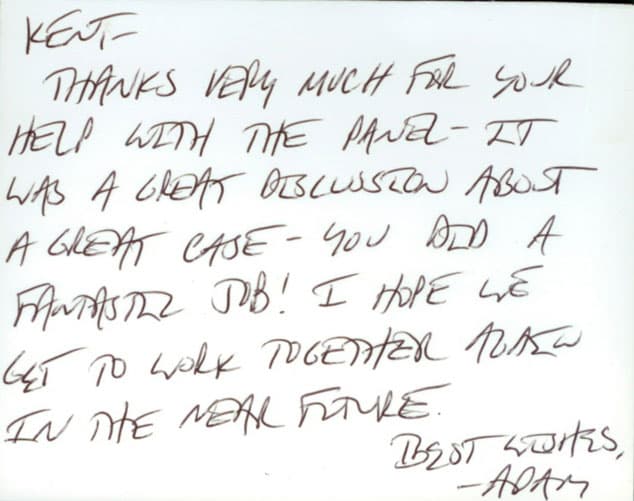 KENT-
THANKS VERY MUCH FOR YOUR
HELP WITH THE PANEL- IT
WAS A GREAT DISCUSSION ABOUT
A GREAT CASE- YOU DID A
FANTASTIC JOB! I HOPE WE
GET TO WORK TOGETHER AGAIN
IN THE NEAR FUTURE.
BEST WISHES,
-ADAM